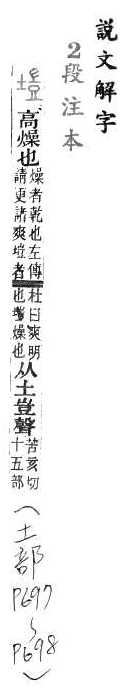 說文解字
2段注本
塏
高燥也
燥者乾也左傳
請更諸爽塏者
杜曰爽明
也塏燥也
从土豈聲
苦亥切
十五部
(土部
P697
~
P698)